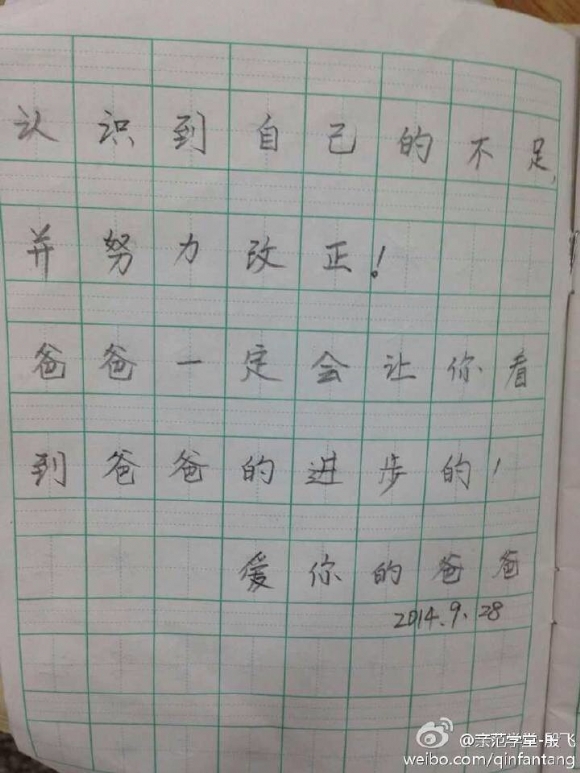 认识到自己的不足,
并努力改正!
爸爸一定会让你看
到爸爸的进步的!
爱你的爸爸
2014.9.28
@亲范学堂-殷飞
weibo.com/qinfantang